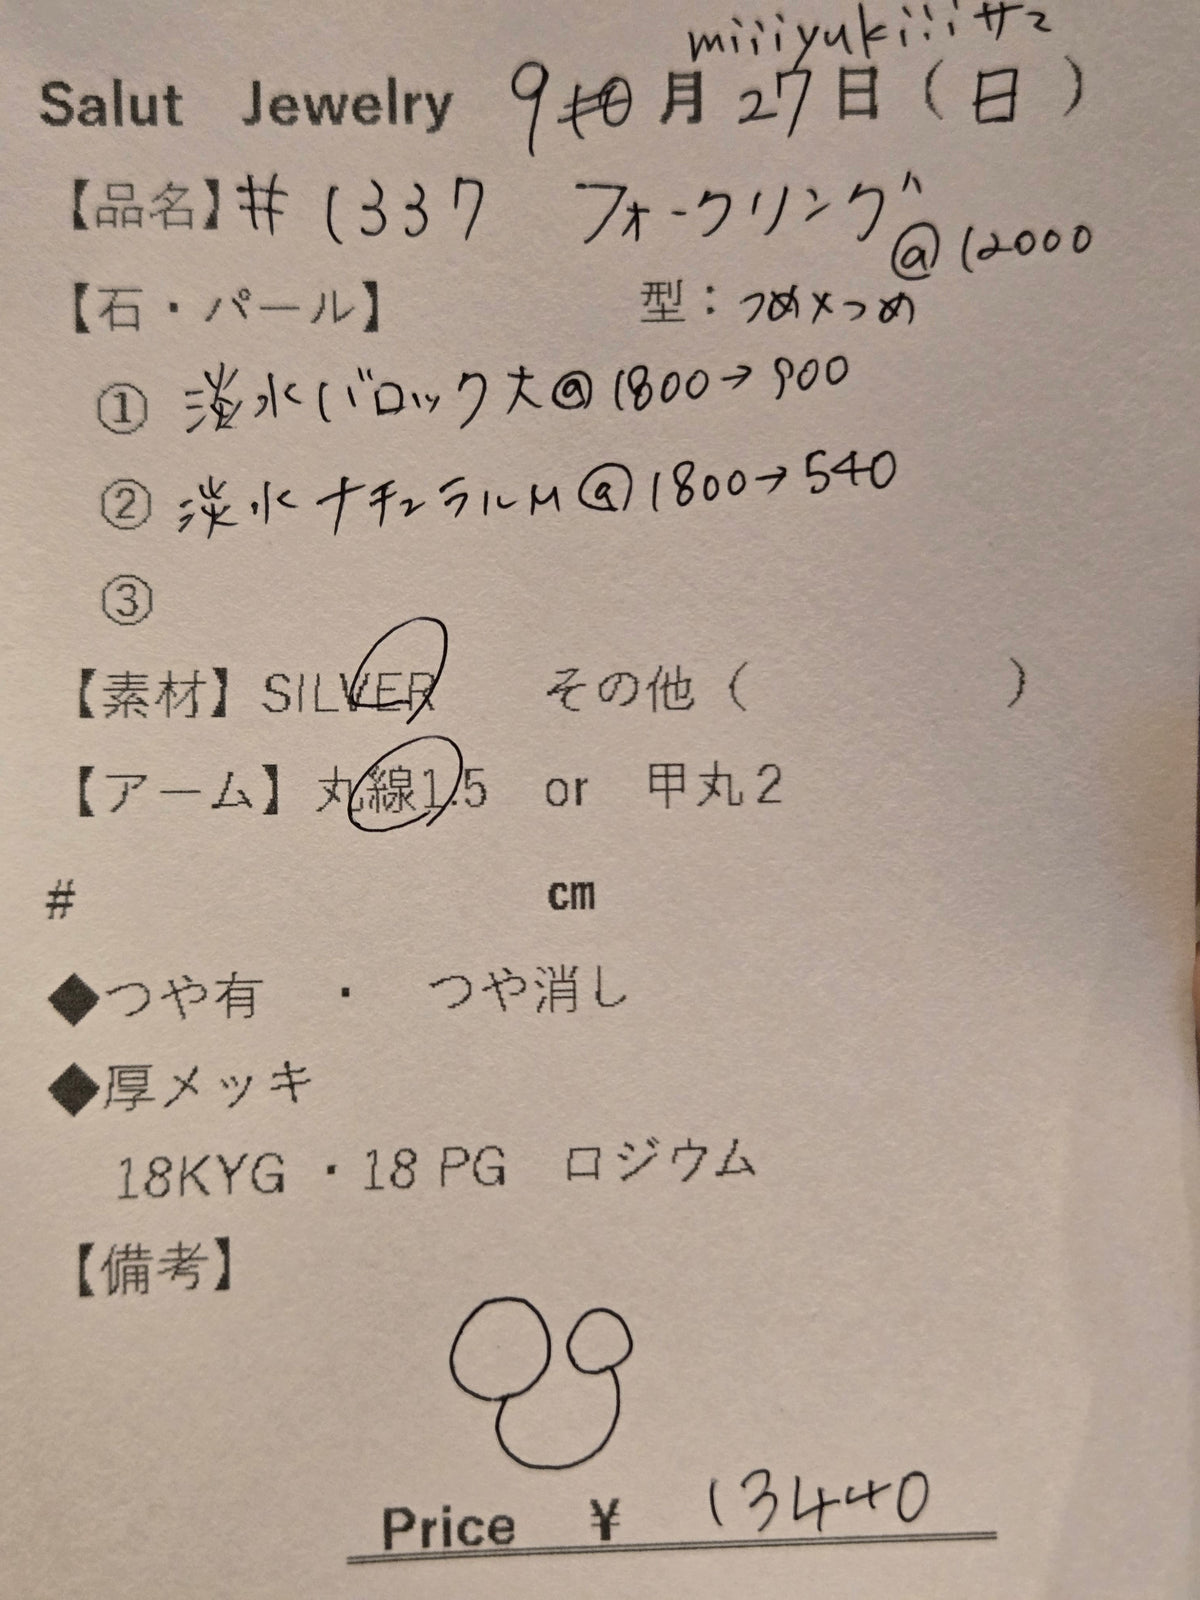 miiiyukiiiサマ
Salut Jewelry 9月27日(日)
【品名】# 1337 フォークリング
@12000
【石・パール】 型：つめ×つめ
① 淡水バロック大@1800→900
② 淡水ナチュラルM@1800→540
③
【素材】SILVER その他( )
【アーム】丸線1.5 or 甲丸2
# cm
◆つや有 ・ つや消し
◆厚メッキ
18KYG ・18 PG ロジウム
【備考】
Price ¥ 13440